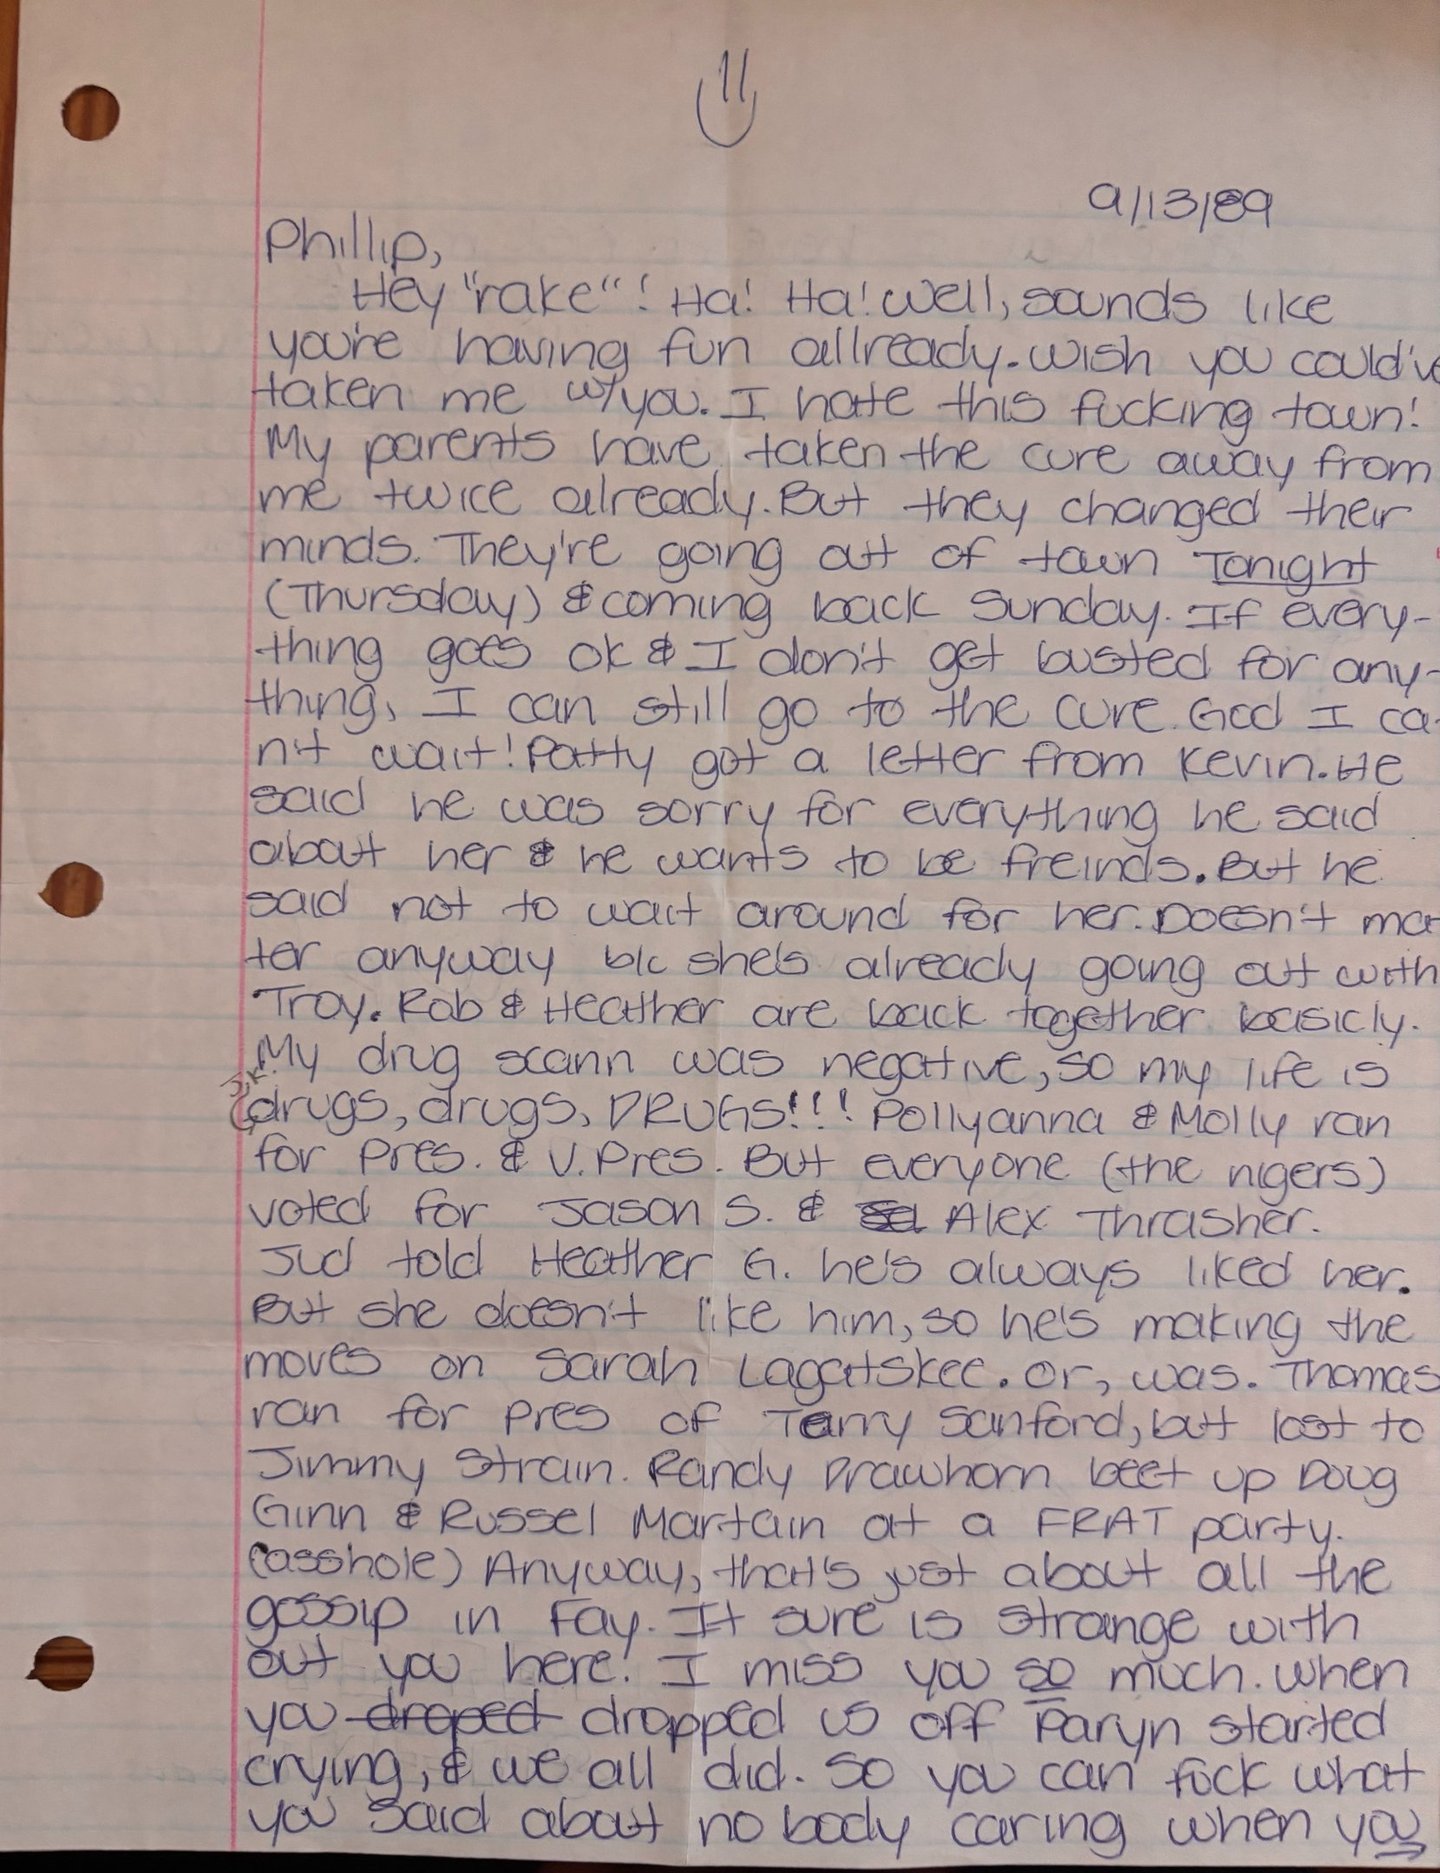 9/13/89
Phillip,
Hey "rake"! Ha! Ha! Well, sounds like
you're having fun allready. Wish you could've
taken me w/you. I hate this fucking town!
My parents have taken the cure away from
me twice already. But they changed their
minds. They're going out of town Tonight
(Thursday) & coming back Sunday. If every-
thing goes ok & I don't get busted for any-
thing, I can still go to the cure. God I ca-
n't wait! Patty got a letter from Kevin. He
said he was sorry for everything he said
about her & he wants to be freinds. But he
said not to wait around for her. Doesn't mat
ter anyway b/c she's already going out with
Troy. Rob & Heather are back together basicly.
My drug scann was negative, so my life is
J.K.
drugs, drugs, DRUGS!!! Pollyanna & Molly ran
for Pres. & V. Pres. But everyone (the nigers)
voted for Jason S. & Alex Thrasher.
Jud told Heather G. he's always liked her.
But she doesn't like him, so he's making the
moves on Sarah Lagatskee. Or, was. Thomas
ran for pres of Terry Sanford, but lost to
Jimmy Strain. Randy Drawhorn beet up Doug
Ginn & Russel Martain at a FRAT party.
(asshole) Anyway, that's just about all the
gossip in Fay. It sure is strange with
out you here! I miss you so much. When
you droped dropped us off Paryn started
crying, & we all did. So you can fuck what
you said about no body caring when you